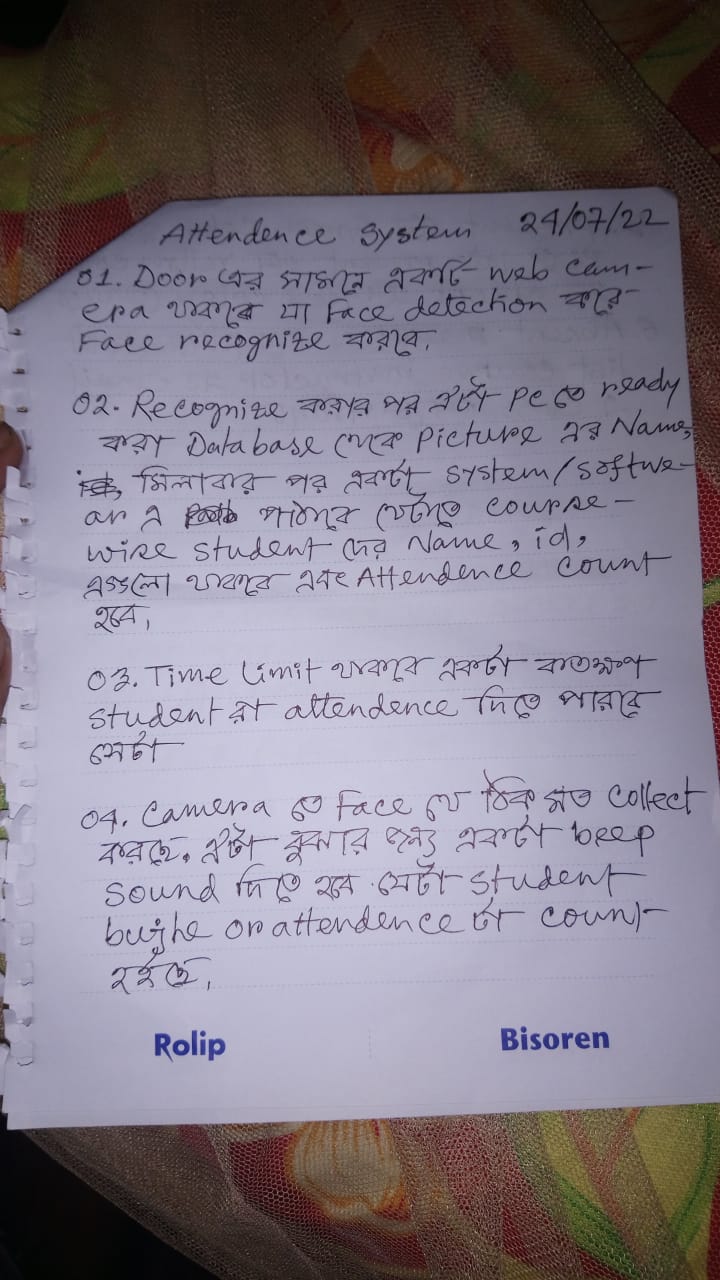 Attendence System 24/07/22
01. Door এর সামনে একটি web cam-
era থাকবে যা Face detection করে
Face recognize করবে,
02. Recognize করার পর এটা PC তে ready
করা Database থেকে Picture এর Name,
id, মিলাবার পর একটা System/softwe-
ar এ পাঠাবে যেটাতে course-
wise student দের Name, id,
এগুলো থাকবে এবং Attendence count
হবে,
03. Time Limit থাকবে একটা কতক্ষণ
student রা attendence দিতে পারবে
সেটা
04. Camera তে Face যে ঠিক মত Collect
করছে, এটা বুঝার জন্য একটা beep
sound দিতে হবে. সেটা student
bujhe or attendence টা count
হইছে,
Rolip Bisoren